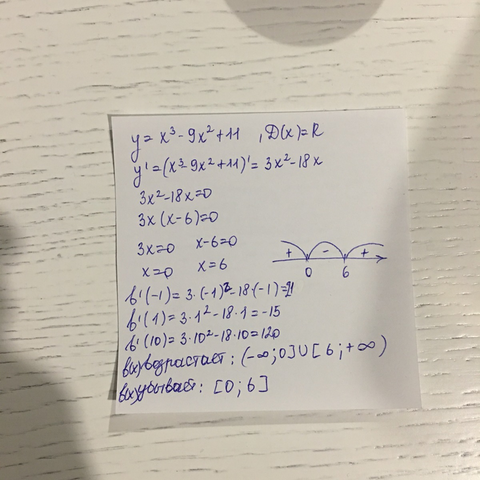 y = x³ - 9x² + 11 , D(x) = R
y' = (x³ - 9x² + 11)' = 3x² - 18x
3x² - 18x = 0
3x (x - 6) = 0
3x = 0 x - 6 = 0
x = 0 x = 6
+ - +
0 6
f'(-1) = 3·(-1)² - 18·(-1) = 21
f'(1) = 3·1² - 18·1 = -15
f'(10) = 3·10² - 18·10 = 120
f(x) возрастает: (-∞; 0] ∪ [6; +∞)
f(x) убывает: [0; 6]